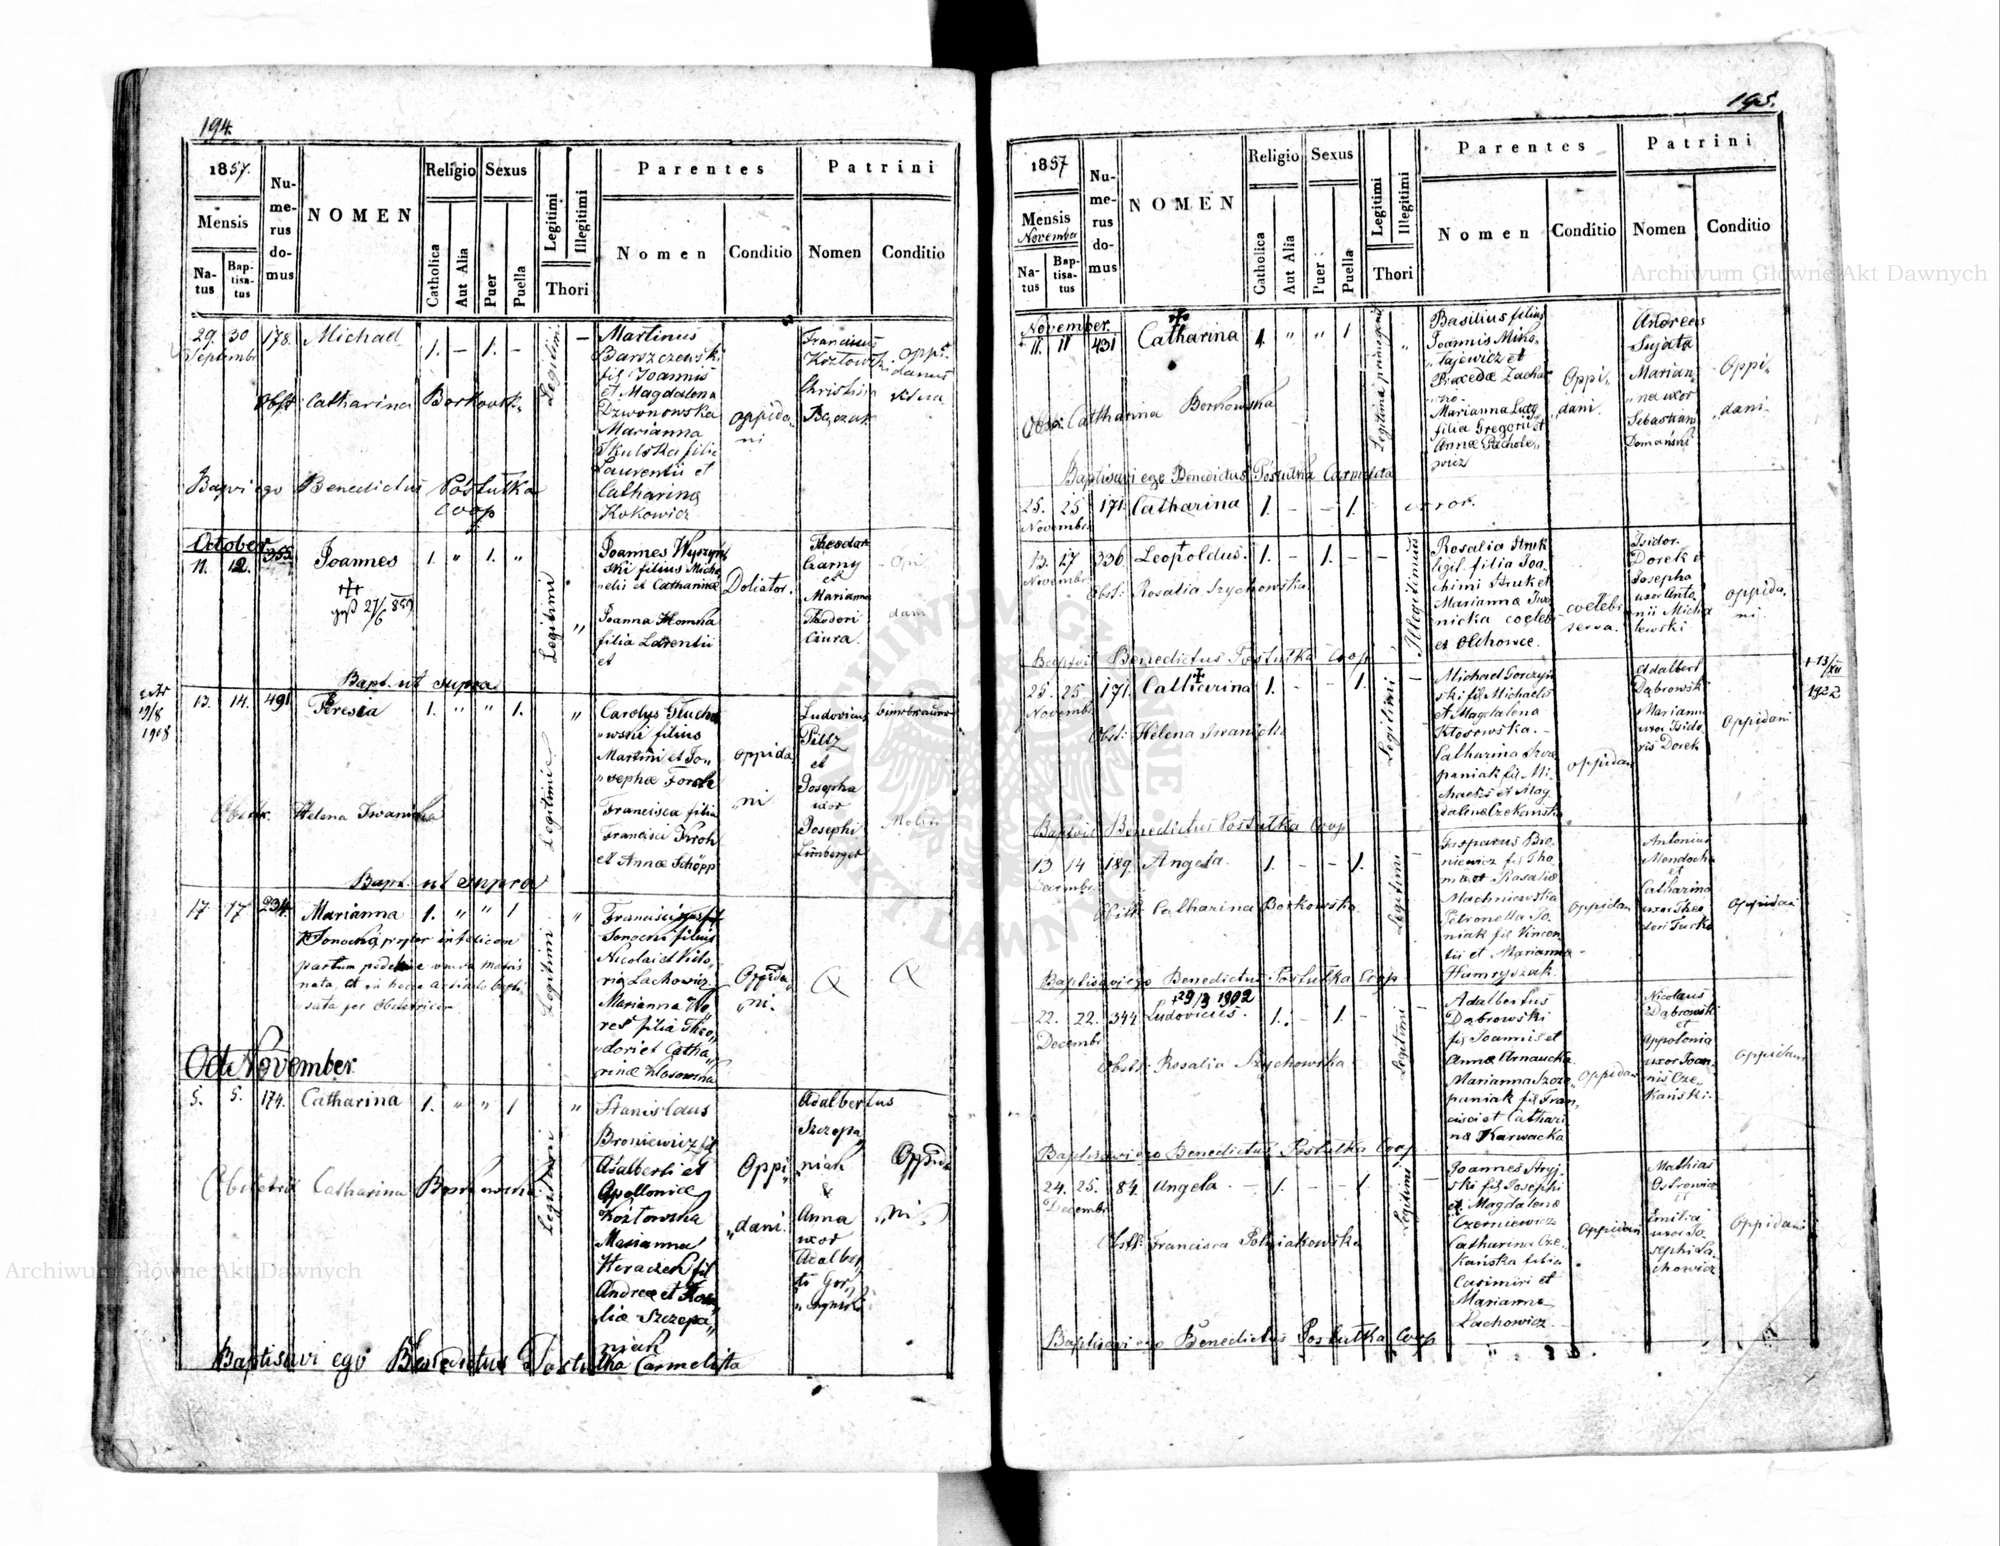 194.
1857.
Mensis
Na-
tus
Bap-
tisa-
tus
Nu-
me-
rus
do-
mus
NOMEN
Religio
Catholica
Aut Alia
Sexus
Puer
Puella
Legitimi
Illegitimi
Thori
Parentes
Nomen
Conditio
Patrini
Nomen
Conditio
29. 30 178. Michael 1. – 1. –
Septembr
Legitimi
Martinus
Barszczewski
fil: Joannis
et Magdalena
Dzwonowska
Marianna
Skulska filia
Laurentii et
Catharina
Kokowicz
oppida-
ni
Franciscus
Kozłowski
Obst: Catharina Borkowsk.
Bapvi ego Benedictus Postutka
Coop
October
11. 12. 355 Joannes 1. " 1. "
Legitimi
Joannes Wyszyń
ski filius Micha
elis et Catharinae
Joanna
filia
et
Doliator.
Theodor
Czarny
et
Marianna
Theodori
Ciura.
Bapt. ut supra
13. 14. 491 Teresia 1. " " 1.
19/8
1908
Carolus Głucho
wski filius
Martini et Jo-
sephae
Francisca filia
Francisci Kroh
et Annae Schöpp
oppida
"ni
Ludovicus
Piltz
et
Josepha
uxor
Josephi
Limberger
Obstetr. Helena Iwanicka
Bapt. ut supra
17 17 234. Marianna 1. " " 1
Legitimi
Sonocha propter infelicem
nata, et in hocce actu
sata per Obstetricem
filius
Nicolai et Victo-
ria Lachowicz
Marianna
filia Theo-
dori et Catha-
rinae
Oppida-
"ni.
November
5. 5. 174. Catharina 1. " " 1 "
Legitimi
Stanislaus
Broniewicz fil
Adalberti et
Apolloniae
Kozłowska
Marianna
fil
Andreae et
liae Szczepa"
niak
Oppi"
"dani.
Adalbertus
Szczepa"
"niak
&
Anna
uxor
Adalber
ti
Oppida
"ni.
Obstetrix Catharina Borkowska
Baptisavi ego Benedictus Postutka Carmelita
195.
1857
Mensis
November
Na-
tus
Bap-
tisa-
tus
Nu-
me-
rus
do-
mus
NOMEN
Religio
Catholica
Aut Alia
Sexus
Puer
Puella
Legitimi
Illegitimi
Thori
Parentes
Nomen
Conditio
Patrini
Nomen
Conditio
November.
11. 11 431 Catharina 1. " " 1 "
Basilius filius
Joannis Miko-
"łajewicz et
Praxedae Zachar
Marianna
filia Gregorii et
Annae Pachole"
wicz
Oppi"
"dani.
Andreas
Sujata
Marian"
"na uxor
Sebastiani
Domański
Oppi"
"dani
Obst: Catharina Borkowska
Baptisavi ego Benedictus Postutka Carmelita
25. 25 171. Catharina 1. – – 1. error.
Novembr.
13. 27 336. Leopoldus. 1. – 1. – –
Novembr.
Illegitimus
Rosalia Struk
legit. filia Joa-
chimi Struk et
Marianna Iwa
nicka coelebs
ex Olchowce.
coelebs
serva.
Isidor.
Dorek &
Josepha
uxor Anto
nii Micha
lewski
oppida-
ni.
Obst: Rosalia Szychowska
Baptvi Benedictus Postutka Coop
25. 25 171. Catharina 1. – – 1.
Novembr
Legitimi
Michael Gorczyń
ski fil Michaelis
et Magdalena
Kłosowska.–
Catharina Szcze
paniak fil Mi-
chaelis et Mag
dalena Czekańska
oppidani
Adalbert
Dąbrowski
& Marianna
uxor Isido
ris Dorek
oppidani
+ 13/XII
1922
Obst: Helena Iwanicka
Baptvi Benedictus Postutka Coop
13 14 189. Angela. 1. – – 1.
Decembr
Legitimi
Gasparus Bro-
niewicz fil Tho
mae et Rosaliae
Machniewska
Petronella Jo-
niak fil Vincen
tii et Marianna
Hamryszak.
oppidani
Antonius
Mendocha
et
Catharina
uxor Theo
dori Turko
oppidani
Obst: Catharina Borkowska
Baptisavi ego Benedictus Postutka Coop
+29/3 1902
22. 22. 344 Ludovicus. 1. – 1. –
Decembr
Legitimi
Adalbertus
Dąbrowski
fil Joannis et
Anna Arnaucka
Marianna Szcze-
paniak fil Fran"
cisci et Cathari
na Karwacka
oppidani
Nicolaus
Dąbrowski
et
Appolonia
uxor Joan-
nis Cze-
kański.
oppidani
Obst: Rosalia Szychowska
Baptisavi ego Benedictus Postutka Coop.
24. 25. 84. Angela. – 1. – – 1.
Decembr
Legitimi
Joannes Stryj-
ski fil Josephi
et Magdalena
Czerniewicz
Catharina Cze-
kańska filia
Casimiri et
Marianna
Lachowicz.
oppidani
Mathias
Ostrowicz
et
Emilia
uxor Jo-
sephi La-
chowicz
oppidani
Obst: Francisca Polniakowska
Baptisavi ego Benedictus Postutka Coop
Archiwum Główne Akt Dawnych
Archiwum Główne Akt Dawnych
ARCHIWUM GŁÓWNE AKT DAWNYCH